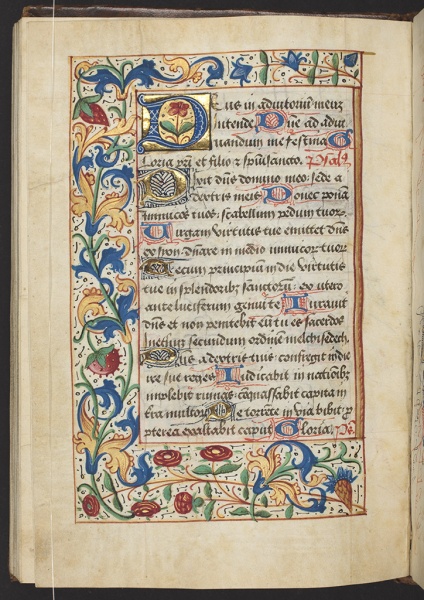 Deus in adiutoriũ meuȝ
intende Dñe ad adiu
uandum me festina G
loria pr̃i et filio ⁊ spũi sancto. Psalꝰ
Dixit dñs domino meo: sede a
dextris meis Donec ponã
inimicos tuos: scabellum pedum tuoꝝ
Uirgam virtutis tue emittet dñs
ex syon: dñare in medio inimicoꝝ tuoꝝ
Tecum principiũ in die virtutis
tue in splendoribȝ sanctoꝝ: ex utero
ante luciferum genui te Iurauit
dñs et non penitebit eũ tu es sacerdos
in eternũ secundum ordinẽ melchisedech.
Dñs a dextris tuis: confregit in die
ire sue reges Iudicabit in nationibȝ
implebit ruinas: conquassabit capita in
terra multoꝝ De torrente in via bibit: ꝓ
pterea exaltabit caput Gloria. Ps.